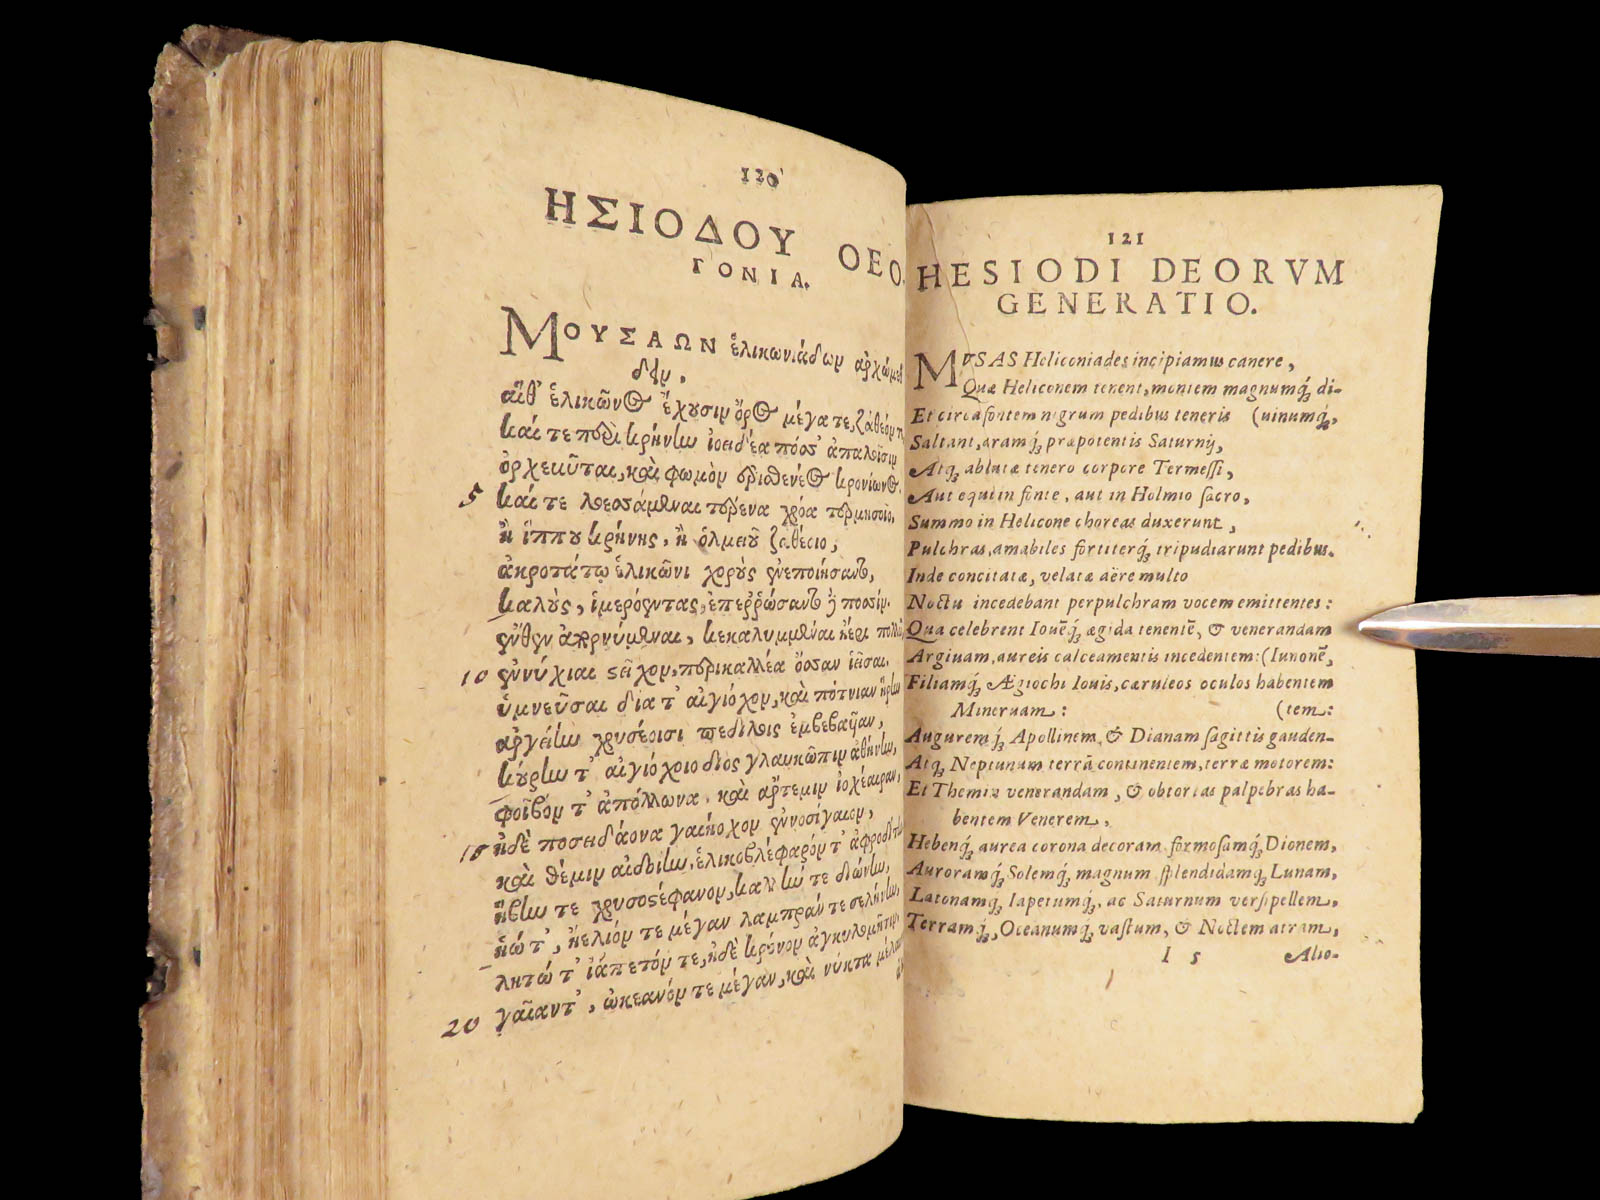 120
ΗΣΙΟΔΟΥ ΘΕΟ-
ΓΟΝΙΑ.
ΜΟΥΣΑΩΝ ἑλικωνιάδων ἀρχώμεθ
αἵθ' ἑλικῶνος ἔχουσιν ὄρος μέγα τε, ζάθεόν τε
καί τε περὶ κρήνην ἰοειδέα πόσσ' ἁπαλοῖσιν
ὀρχεῦνται, καὶ βωμὸν ἐρισθενέος κρονίωνος.
5 καί τε λοεσσάμεναι τέρενα χρόα τερμησσοῖο,
ἢ ἵππου κρήνης, ἢ ὁλμειοῦ ζαθέοιο,
ἀκροτάτῳ ἑλικῶνι χοροὺς ἐνεποιήσαντο,
καλοὺς, ἱμερόεντας, ἐπερρώσαντο δὲ ποσσίν.
ἔνθεν ἀπορνύμεναι, κεκαλυμμέναι ἠέρι πολλῷ
10 ἐννύχιαι στεῖχον, περικαλλέα ὄσσαν ἱεῖσαι.
ὑμνεῦσαι δία τ' αἰγίοχον, καὶ πότνιαν ἥρην
ἀργείην χρυσέοισι πεδίλοις ἐμβεβαυῖαν,
κούρην τ' αἰγιόχοιο διὸς γλαυκῶπιν ἀθήνην,
φοῖβόν τ' ἀπόλλωνα, καὶ ἄρτεμιν ἰοχέαιραν,
15 ἠδὲ ποσειδάονα γαιήοχον ἐννοσίγαιον,
καὶ θέμιν αἰδοίην, ἑλικοβλέφαρόν τ' ἀφροδίτην
ἥβην τε χρυσοστέφανον, καλήν τε διώνην,
ἠώ τ', ἠέλιόν τε μέγαν λαμπράν τε σελήνην,
λητώ τ' ἰάπετόν τε, ἠδὲ κρόνον ἀγκυλομήτην,
20 γαῖαν τ', ὠκεανόν τε μέγαν, καὶ νύκτα μέλαιναν
121
HESIODI DEORVM
GENERATIO.
MVSAS Heliconiades incipiamus canere,
Quæ Heliconem tenent, montem magnumq́; di-
Et circa fontem nigrum pedibus teneris (uinumq́;,
Saltant, aramq́; præpotentis Saturnij,
Atq; ablutæ tenero corpore Termessi,
Aut equi in fonte, aut in Holmio sacro,
Summo in Helicone choreas duxerunt,
Pulchras, amabiles fortiterq́; tripudiarunt pedibus.
Inde concitatæ, velatæ aëre multo
Noctu incedebant perpulchram vocem emittentes:
Qua celebrent Iouẽq́; ægida tenentẽ, & venerandam
Argiuam, aureis calceamentis incedentem: (Iunonẽ,
Filiamq́; Ægiochi Iouis, cæruleos oculos habentem
Mineruam: (tem:
Augurem q́; Apollinem, & Dianam sagittis gauden-
Atq; Neptunum terrã continentem, terræ motorem:
Et Themin venerandam, & obtortas palpebras ha-
bentem Venerem,
Hebenq́; aurea corona decoram, formosamq́; Dionem,
Auroramq́; Solemq́; magnum splendidamq́; Lunam,
Latonamq́; Iapetumq́;, ac Saturnum versipellem,
Terramq́;, Oceanumq́; vastum, & Noctem atram,
I 5 Alio-